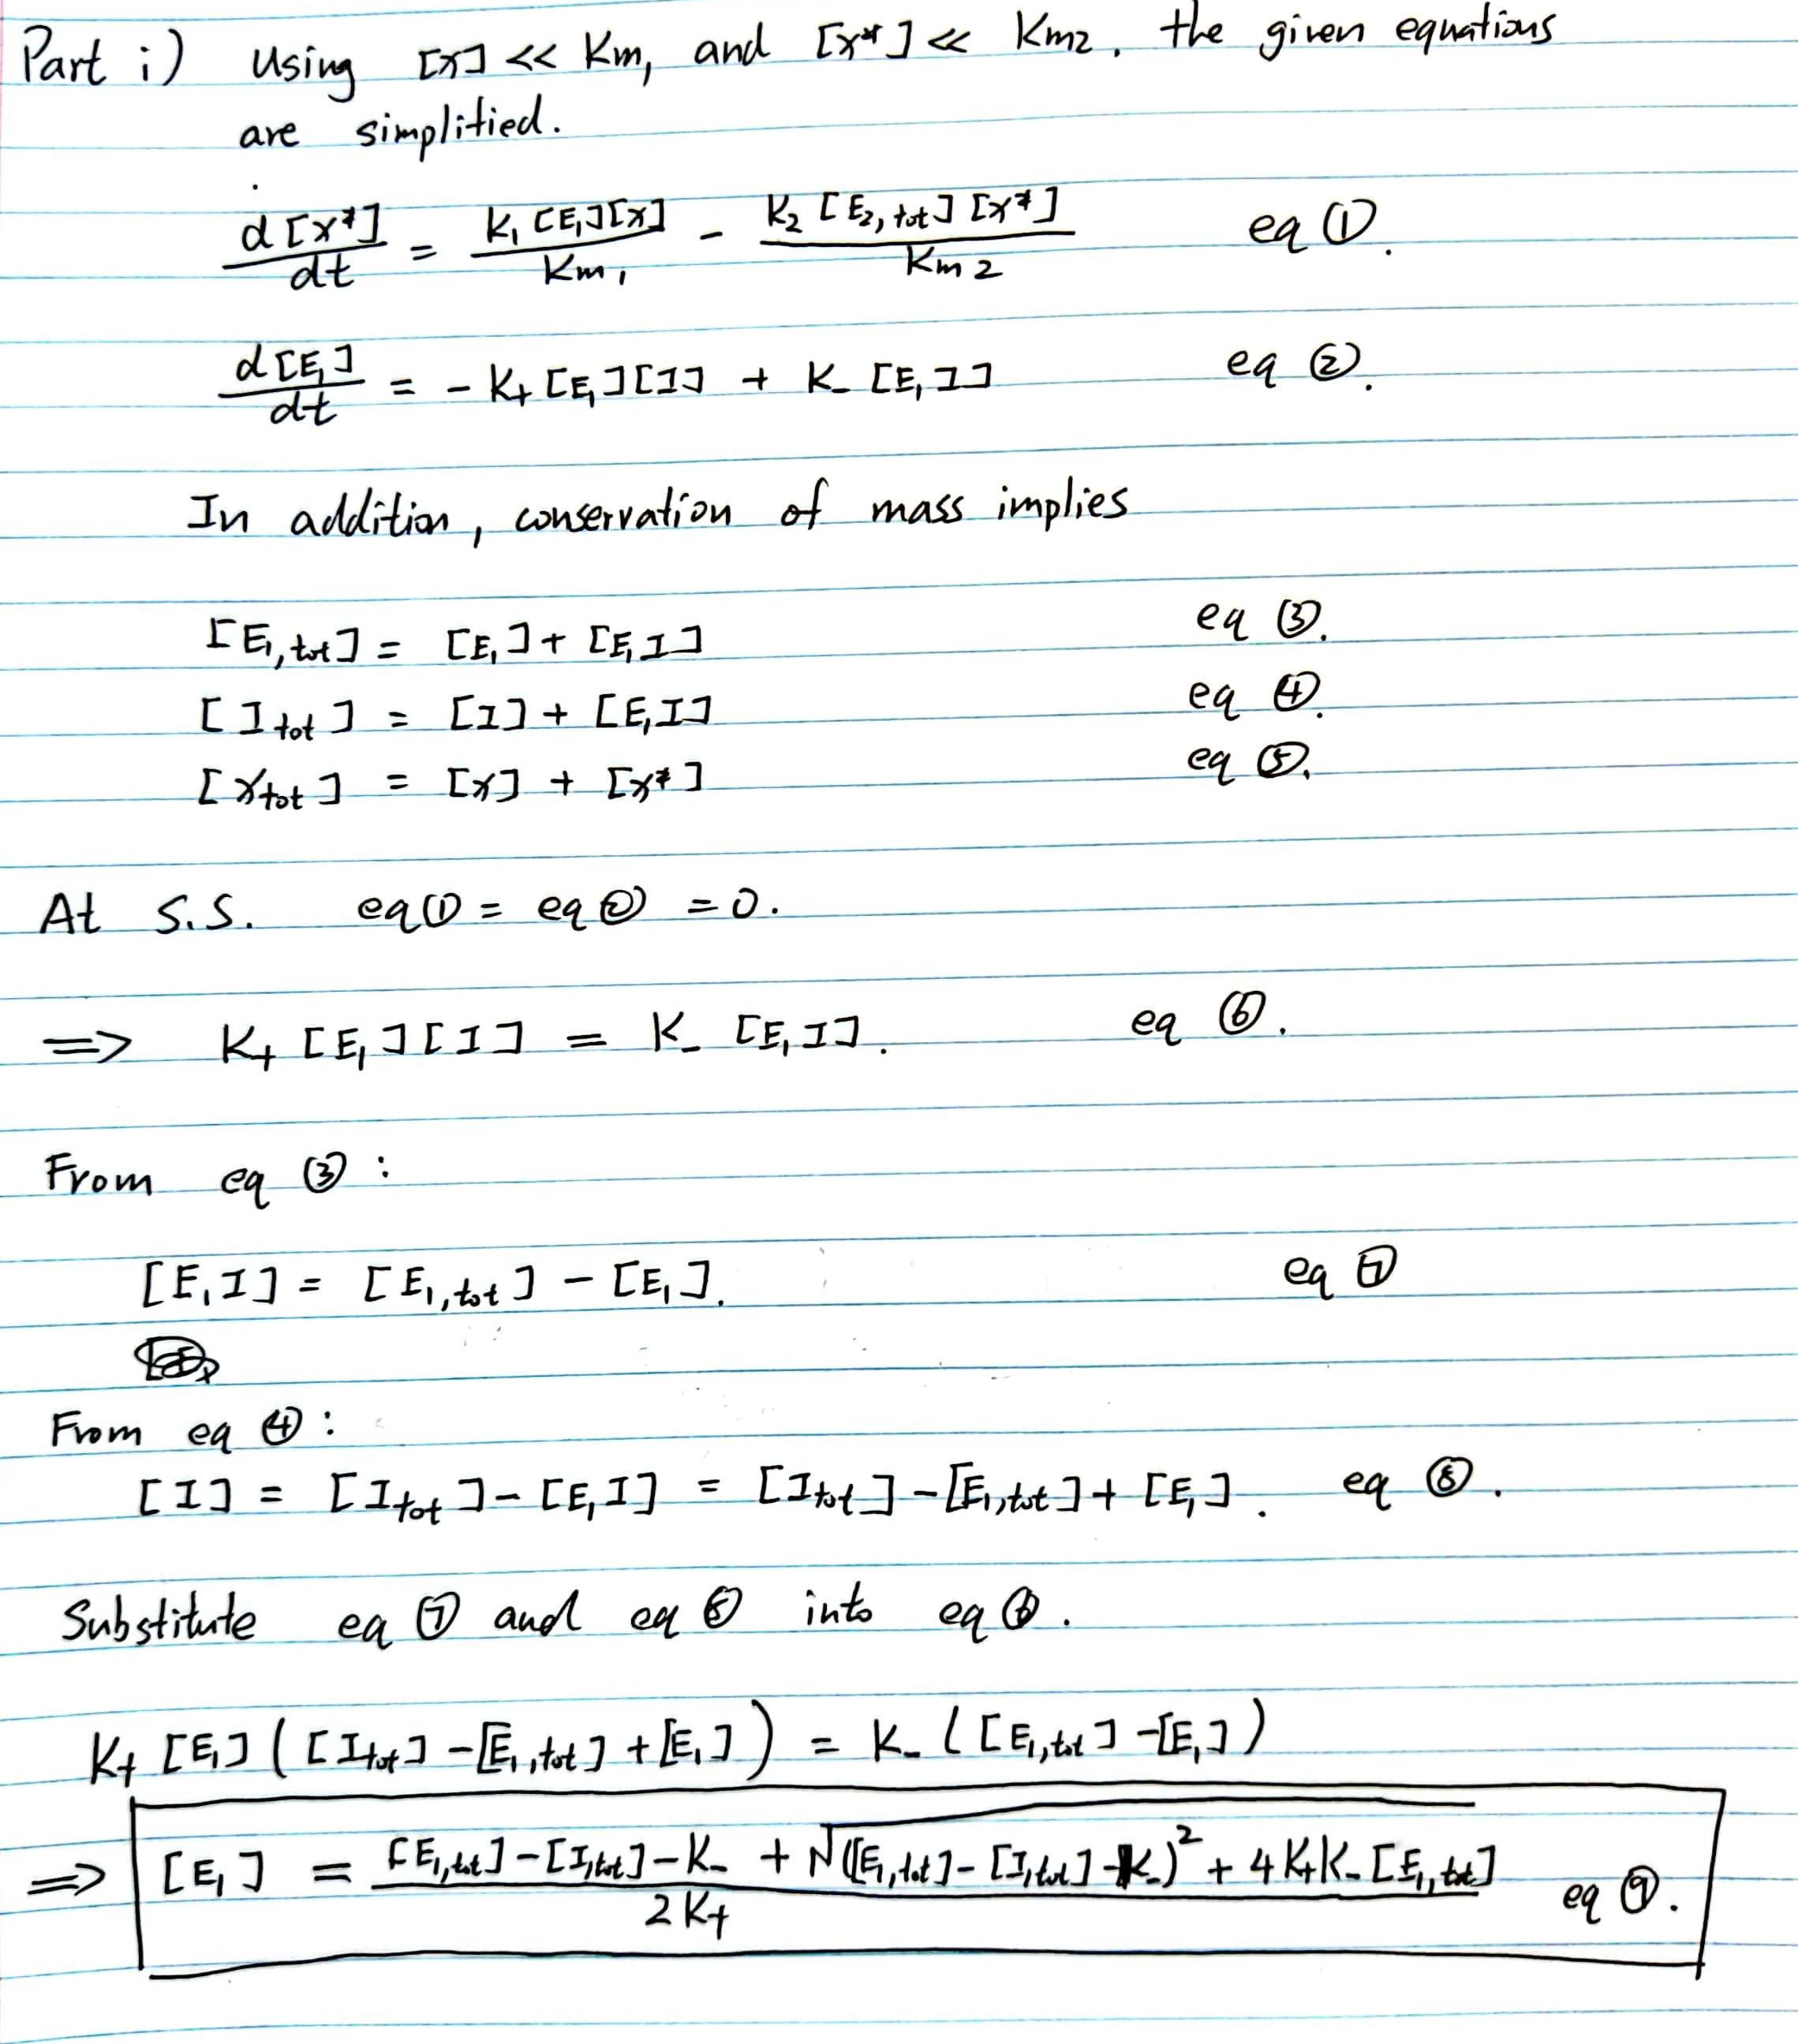 Part i) Using [X] << Km1 and [X*] << Km2, the given equations
are simplified.
d[X*]/dt = K1[E1][X]/Km1 - K2[E2,tot][X*]/Km2 eq ①.
d[E1]/dt = - K+[E1][I] + K-[E1I] eq ②.
In addition, conservation of mass implies
[E1,tot] = [E1] + [E1I] eq ③.
[Itot] = [I] + [E1I] eq ④.
[Xtot] = [X] + [X*] eq ⑤.
At S.S. eq① = eq② = 0.
=> K+[E1][I] = K-[E1I]. eq ⑥.
From eq ③:
[E1I] = [E1,tot] - [E1]. eq ⑦
From eq ④:
[I] = [Itot] - [E1I] = [Itot] - [E1,tot] + [E1]. eq ⑧.
Substitute eq ⑦ and eq ⑧ into eq ⑥.
K+[E1]([Itot] - [E1,tot] + [E1]) = K-([E1,tot] - [E1])
=> [E1] = [E1,tot] - [I,tot] - K- + √([E1,tot] - [I,tot] - K-)² + 4K+K-[E1,tot] / 2K+ eq ⑨.